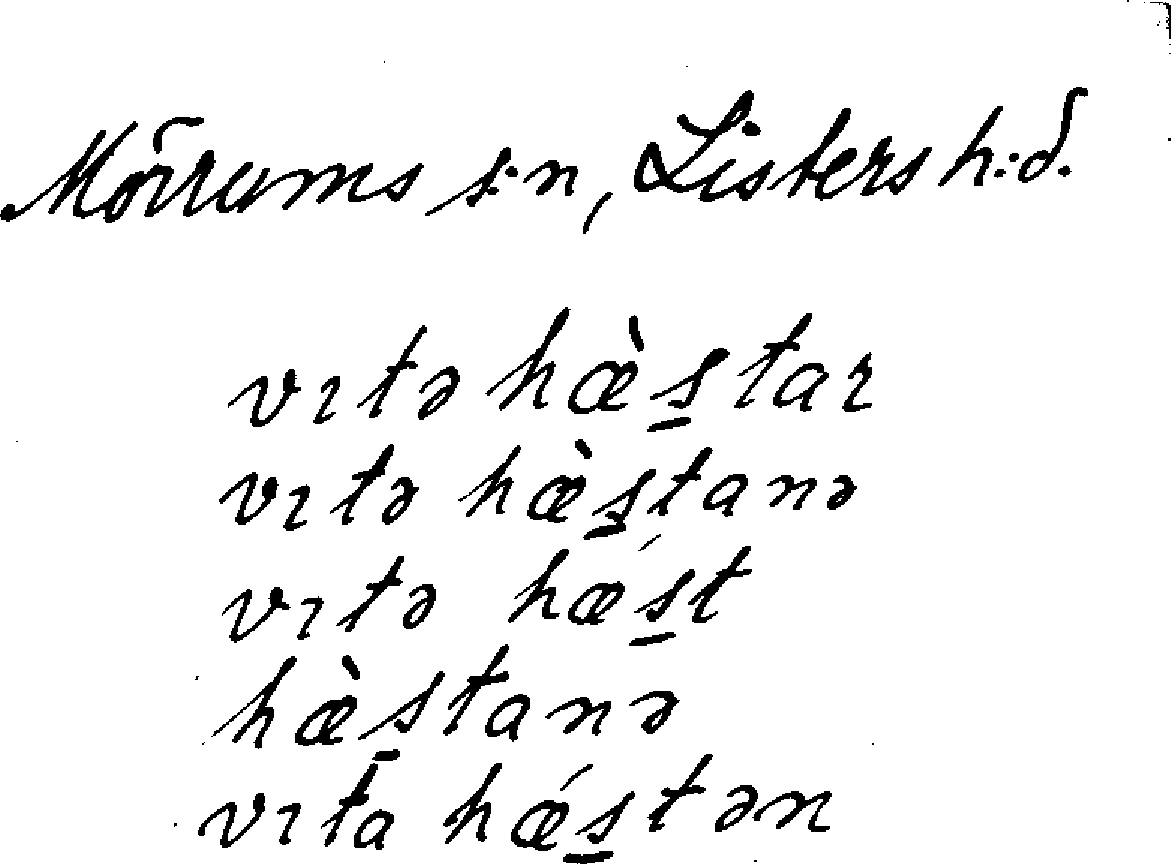 Mörrums s:n, Listers h:d.
vıtə hæ̀s̲tar
vıtə hæ̀s̲tanə
vıtə hǽs̲t
hæ̀s̲tanə
vıta hǽs̲tən